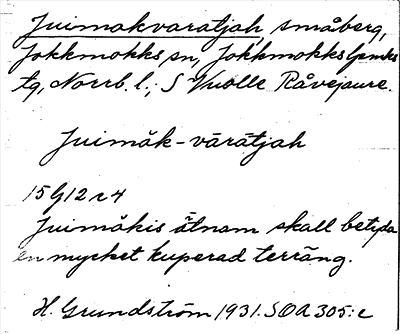 Juimokvaratjah, småberg,
Jokkmokks sn, Jokkmokks lpmks
tg, Norrb. l.; S Vuolle Råvejaure.
Juimåk-vāratjah
15 G 12 c 4
Juimåkis ätnam skall betyda
en mycket kuperad terräng.
H. Grundström 1931. SOA 305:c